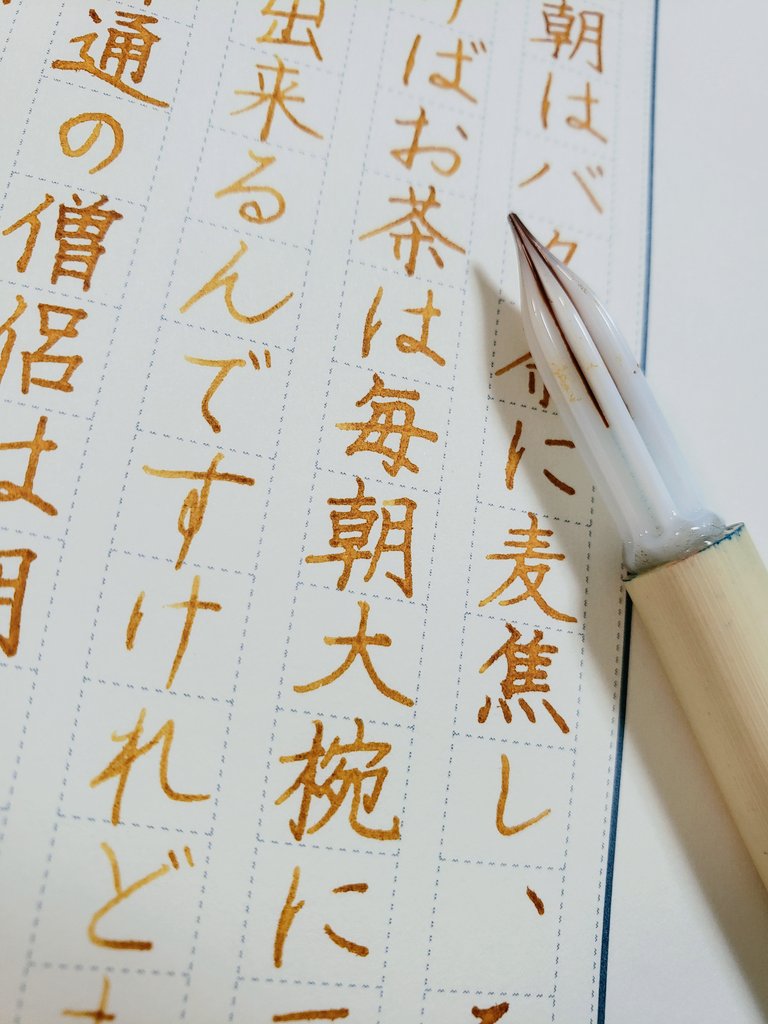 朝はバタ
に麦焦し、
ばお茶は毎朝大椀に
出来るんですけれど
通の僧侶は